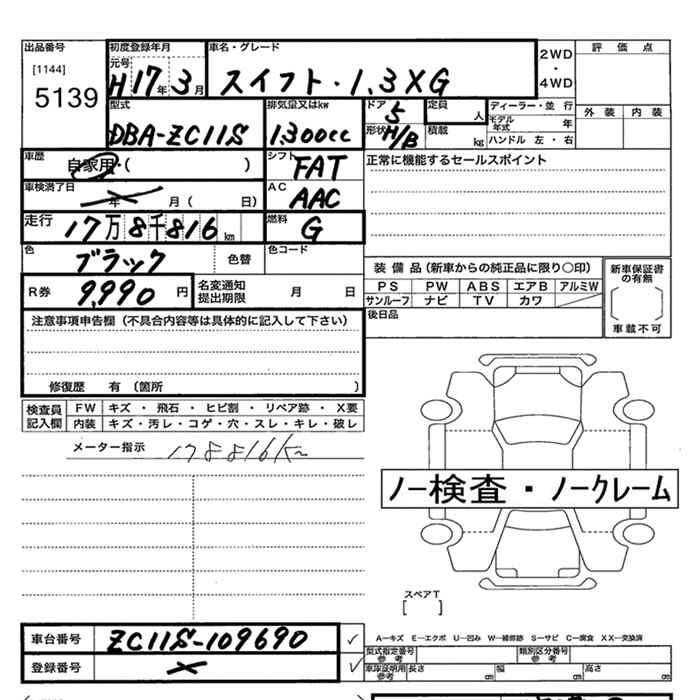 出品番号
[1144]
5139
初度登録年月
元号
H17年3月
車名・グレード
スイフト・1.3XG
2WD
・
4WD
評価点
外装 内装
型式
DBA-ZC11S
排気量又はkw
1,300cc
ドア
5
形状
H/B
定員
人
積載
kg
ディーラー・並 行
モデル年式 年
ハンドル 左・右
車歴
自家用・( )
シフト
FAT
正常に機能するセールスポイント
車検満了日
年 月( 日)
AC
AAC
走行
17万8千816km
燃料
G
色
ブラック
色替
色コード
R券
9,990円
名変通知
提出期限
月 日
装備品(新車からの純正品に限り○印)
PS PW ABS エアB アルミW
サンルーフ ナビ TV カワ
後日品
新車保証書
の有無
車載不可
注意事項申告欄(不具合内容等は具体的に記入して下さい)
修復歴 有(箇所 )
検査員
記入欄
FW キズ・飛石・ヒビ割・リペア跡・X要
内装 キズ・汚レ・コゲ・穴・スレ・キレ・破レ
メーター指示
178816km
ノー検査・ノークレーム
スペアT
[ ]
車台番号
ZC11S-109690
登録番号
A―キズ E―エクボ U―凹み W―補修跡 S―サビ C―腐食 XX―交換済
型式指定番号
参考
類別区分番号
参考
車庫証明用
参考
長さ cm 幅 cm 高さ cm